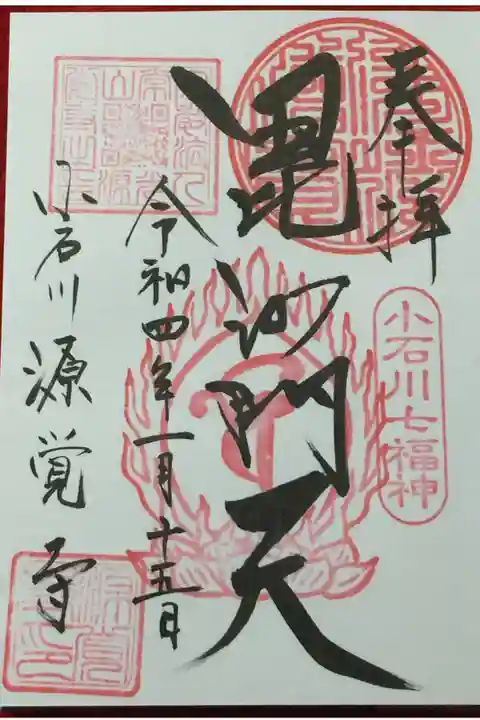 奉拝
小石川七福神
毘沙門天
令和四年一月十五日
小石川 源覚寺